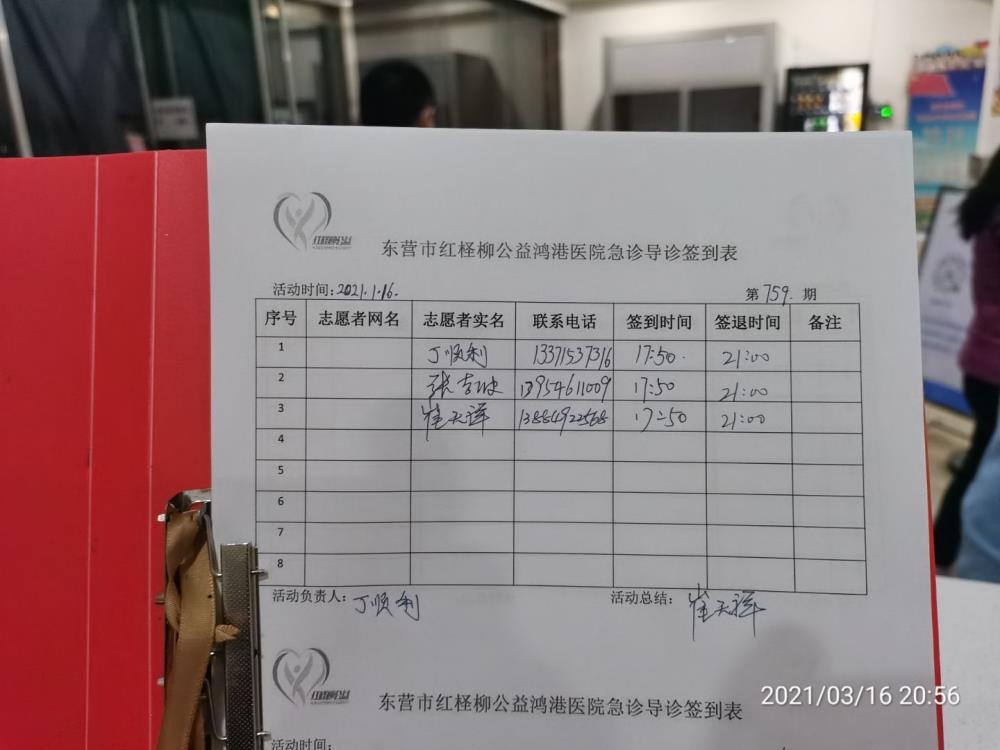 东营市红柽柳公益鸿港医院急诊导诊签到表
活动时间:2021.1.16. 第 759. 期
序号 志愿者网名 志愿者实名 联系电话 签到时间 签退时间 备注
1 丁顺利 13371537316 17:50. 21:00
2 13954611009 17:50 21:00
3 崔天祥 13884922568 17:50 21:00
4
5
6
7
8
活动负责人: 丁顺利 活动总结: 崔天祥
东营市红柽柳公益鸿港医院急诊导诊签到表
活动时间:
2021/03/16 20:56